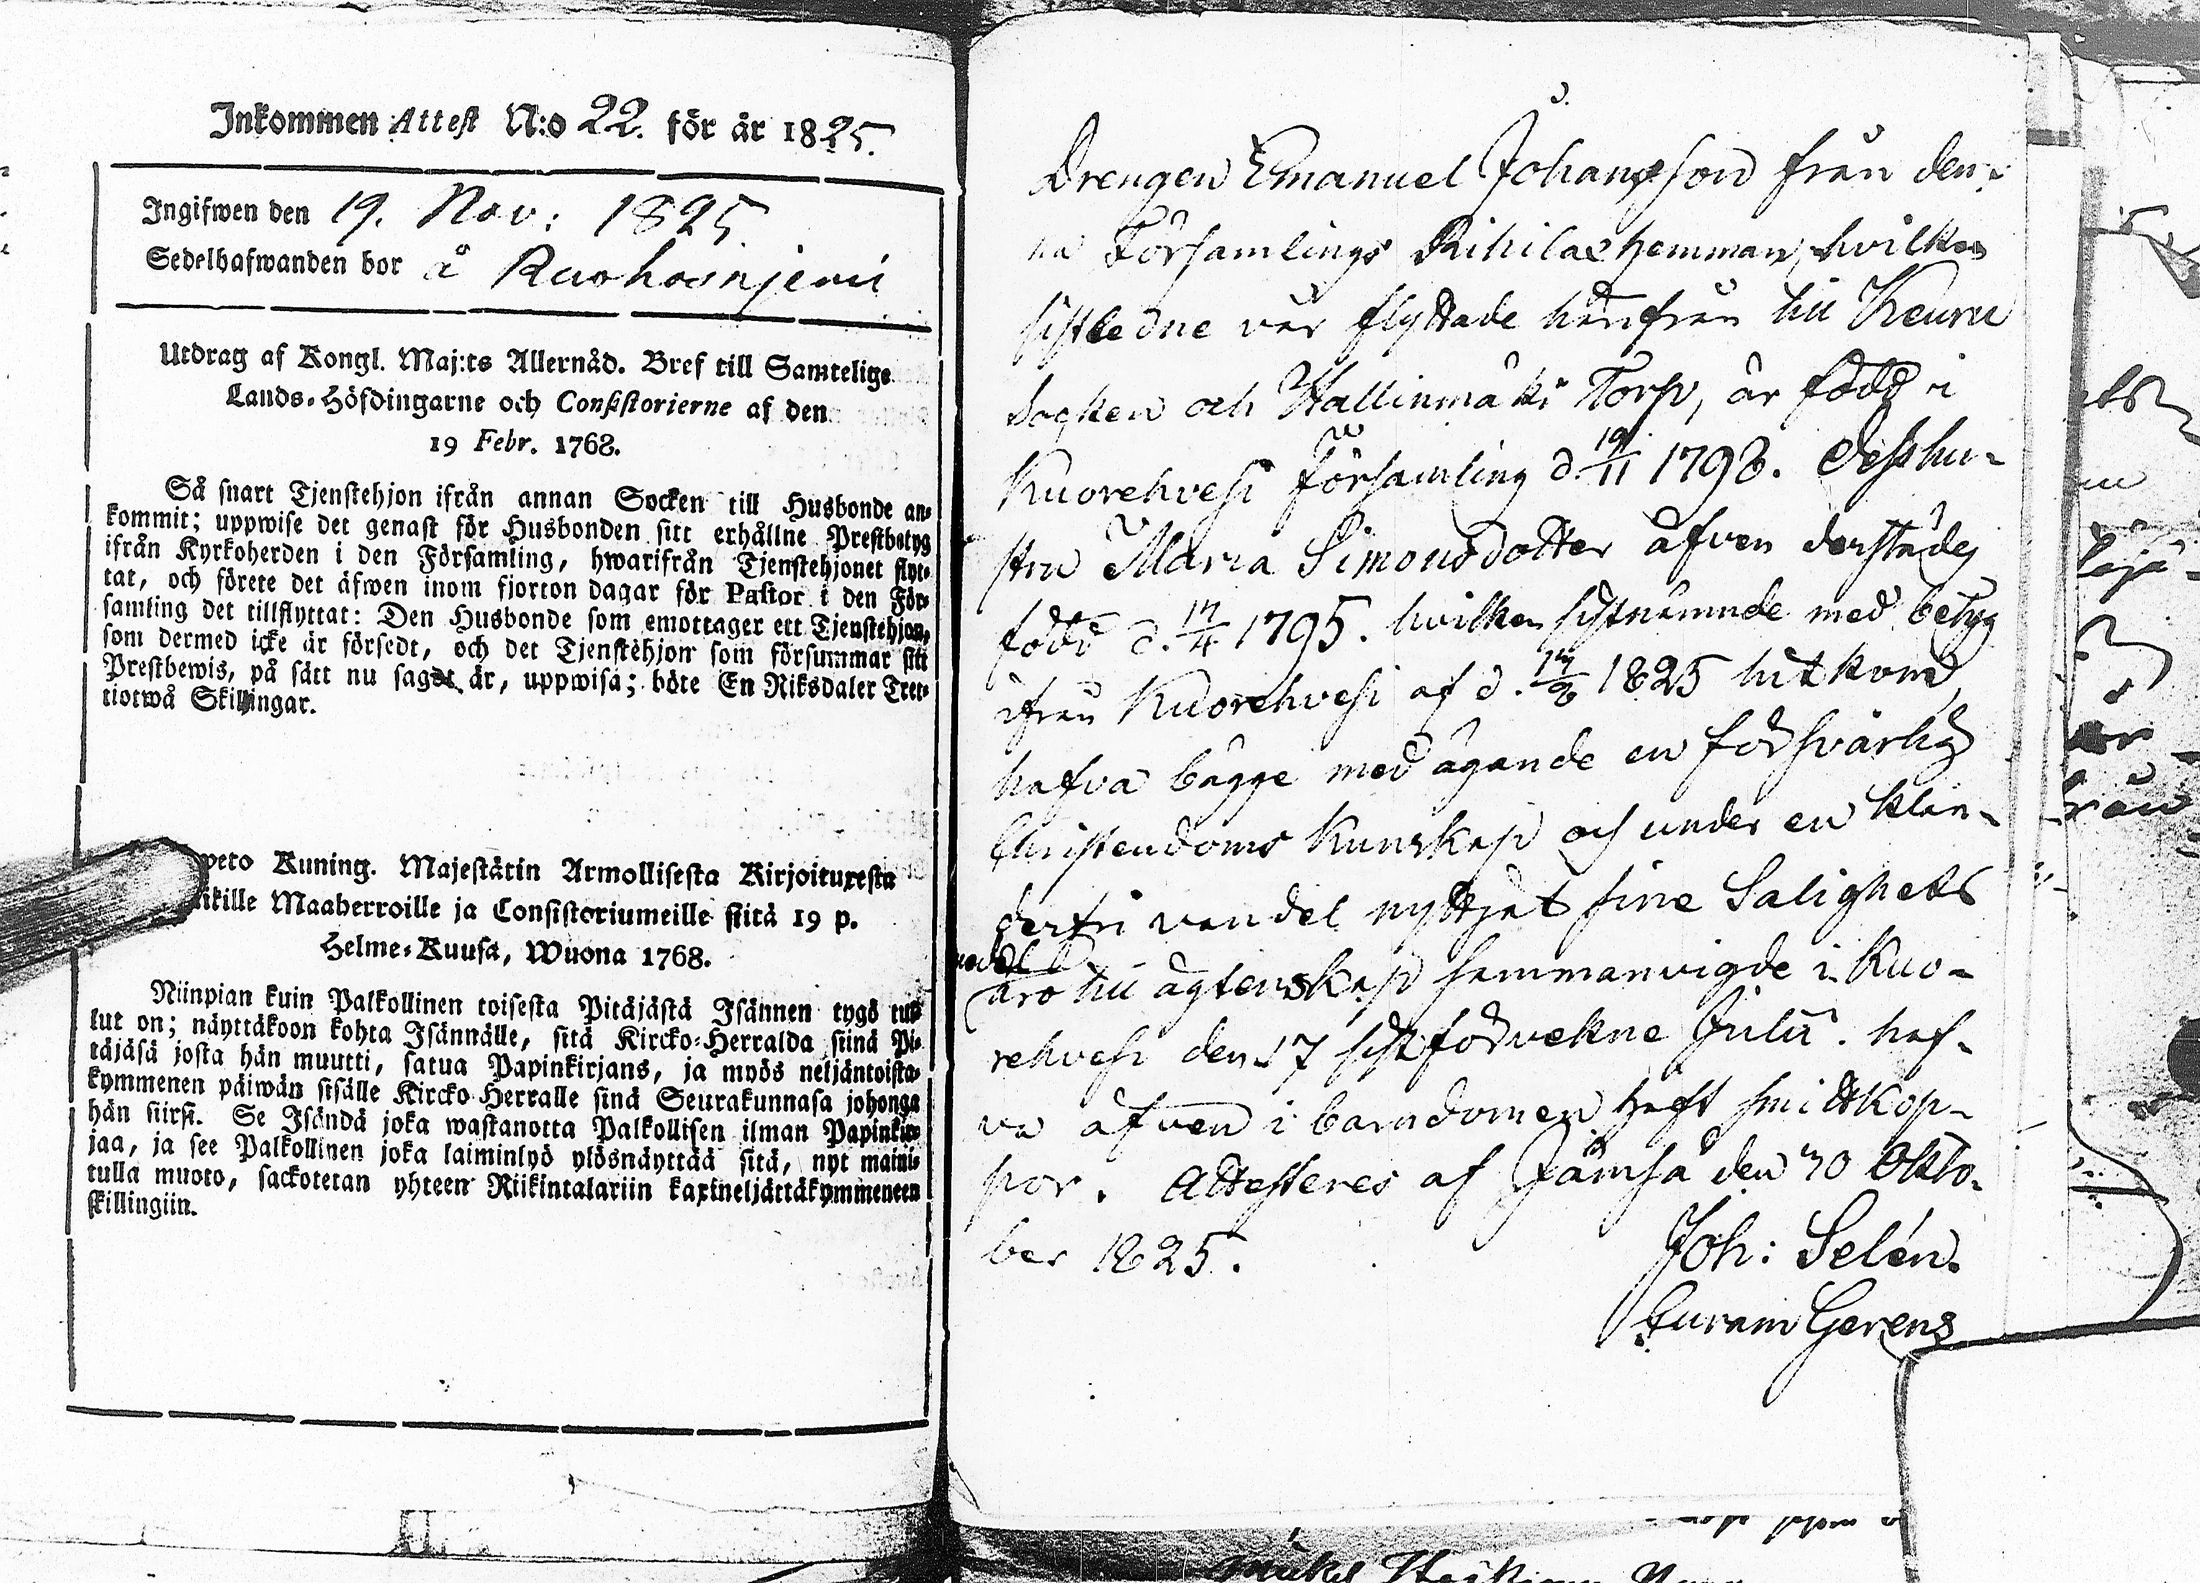 Inkommen Attest N:o 22. för år 1825.
Ingifwen den 19. Nov: 1825
Sedelhafwanden bor å Ruohosnjemi
Utdrag af Kongl. Maj:ts Allernåd. Bref till Samtelige
Lands-Höfdingarne och Consistorierne af den
19 Febr. 1768.
Så snart Tjenstehjon ifrån annan Socken till Husbonde an-
kommit; uppwise det genast för Husbonden sitt erhållne Prestbetyg
ifrån Kyrkoherden i den Församling, hwarifrån Tjenstehjonet flyt-
tat, och förete det äfwen inom fjorton dagar för Pastor i den För-
samling det tillflyttat: Den Husbonde som emottager ett Tjenstehjon,
som dermed icke är försedt, och det Tjenstehjon som försummar sitt
Prestbewis, på sätt nu sagdt är, uppwisa; böte En Riksdaler Tret-
tiotwå Skillingar.
weto Kuning. Majestätin Armollisesta Kirjoituxesta
ikille Maaherroille ja Consistoriumeille siitä 19 p.
Helme-Kuusa, Wuona 1768.
Niinpian kuin Palkollinen toisesta Pitäjästä Isännen tygö tul-
lut on; näyttäkoon kohta Isännälle, sitä Kircko-Herralda siinä Pi-
täjäsä josta hän muutti, satua Papinkirjans, ja myös neljäntoista-
kymmenen päiwän sisälle Kircko Herralle sinä Seurakunnasa johonga
hän siirsi. Se Isändä joka wastanotta Palkollisen ilman Papinkir-
jaa, ja see Palkollinen joka laiminlyö ylösnäyttää sitä, nyt maini-
tulla muoto, sackotetan yhteen Riikintalariin kaxineljättäkymmeneen
skillingiin.
Drengen Emanuel Johansson från den-
na Församlings Rihilax hemman, hvilken
sistledne vår flyttade härifrån till Keuru
Socken och Kallinmäki Torp, är född i
Kuorehvesi församling d. 19/11 1798. Dess hu-
stru Maria Simonsdotter äfven derstädes
född d. 17/4 1795. hvilken sistnämnde med betyg
ifrån Kuorehvesi af d. 1825 hit kom,
hafva bägge med ägande en försvarlig
Christendoms Kunskap och under en klan-
derfri vandel nyttjat sine Salighets
medel
äro till ägtenskap sammanvigde i Kuo-
rehvesi den 17 sistförvekne Julii. haf-
va äfven i barndomen haft smittkop-
por. Attesteres af Jämsä den 30 Okto-
ber 1825.
Joh: Selén.
Curam Gerens